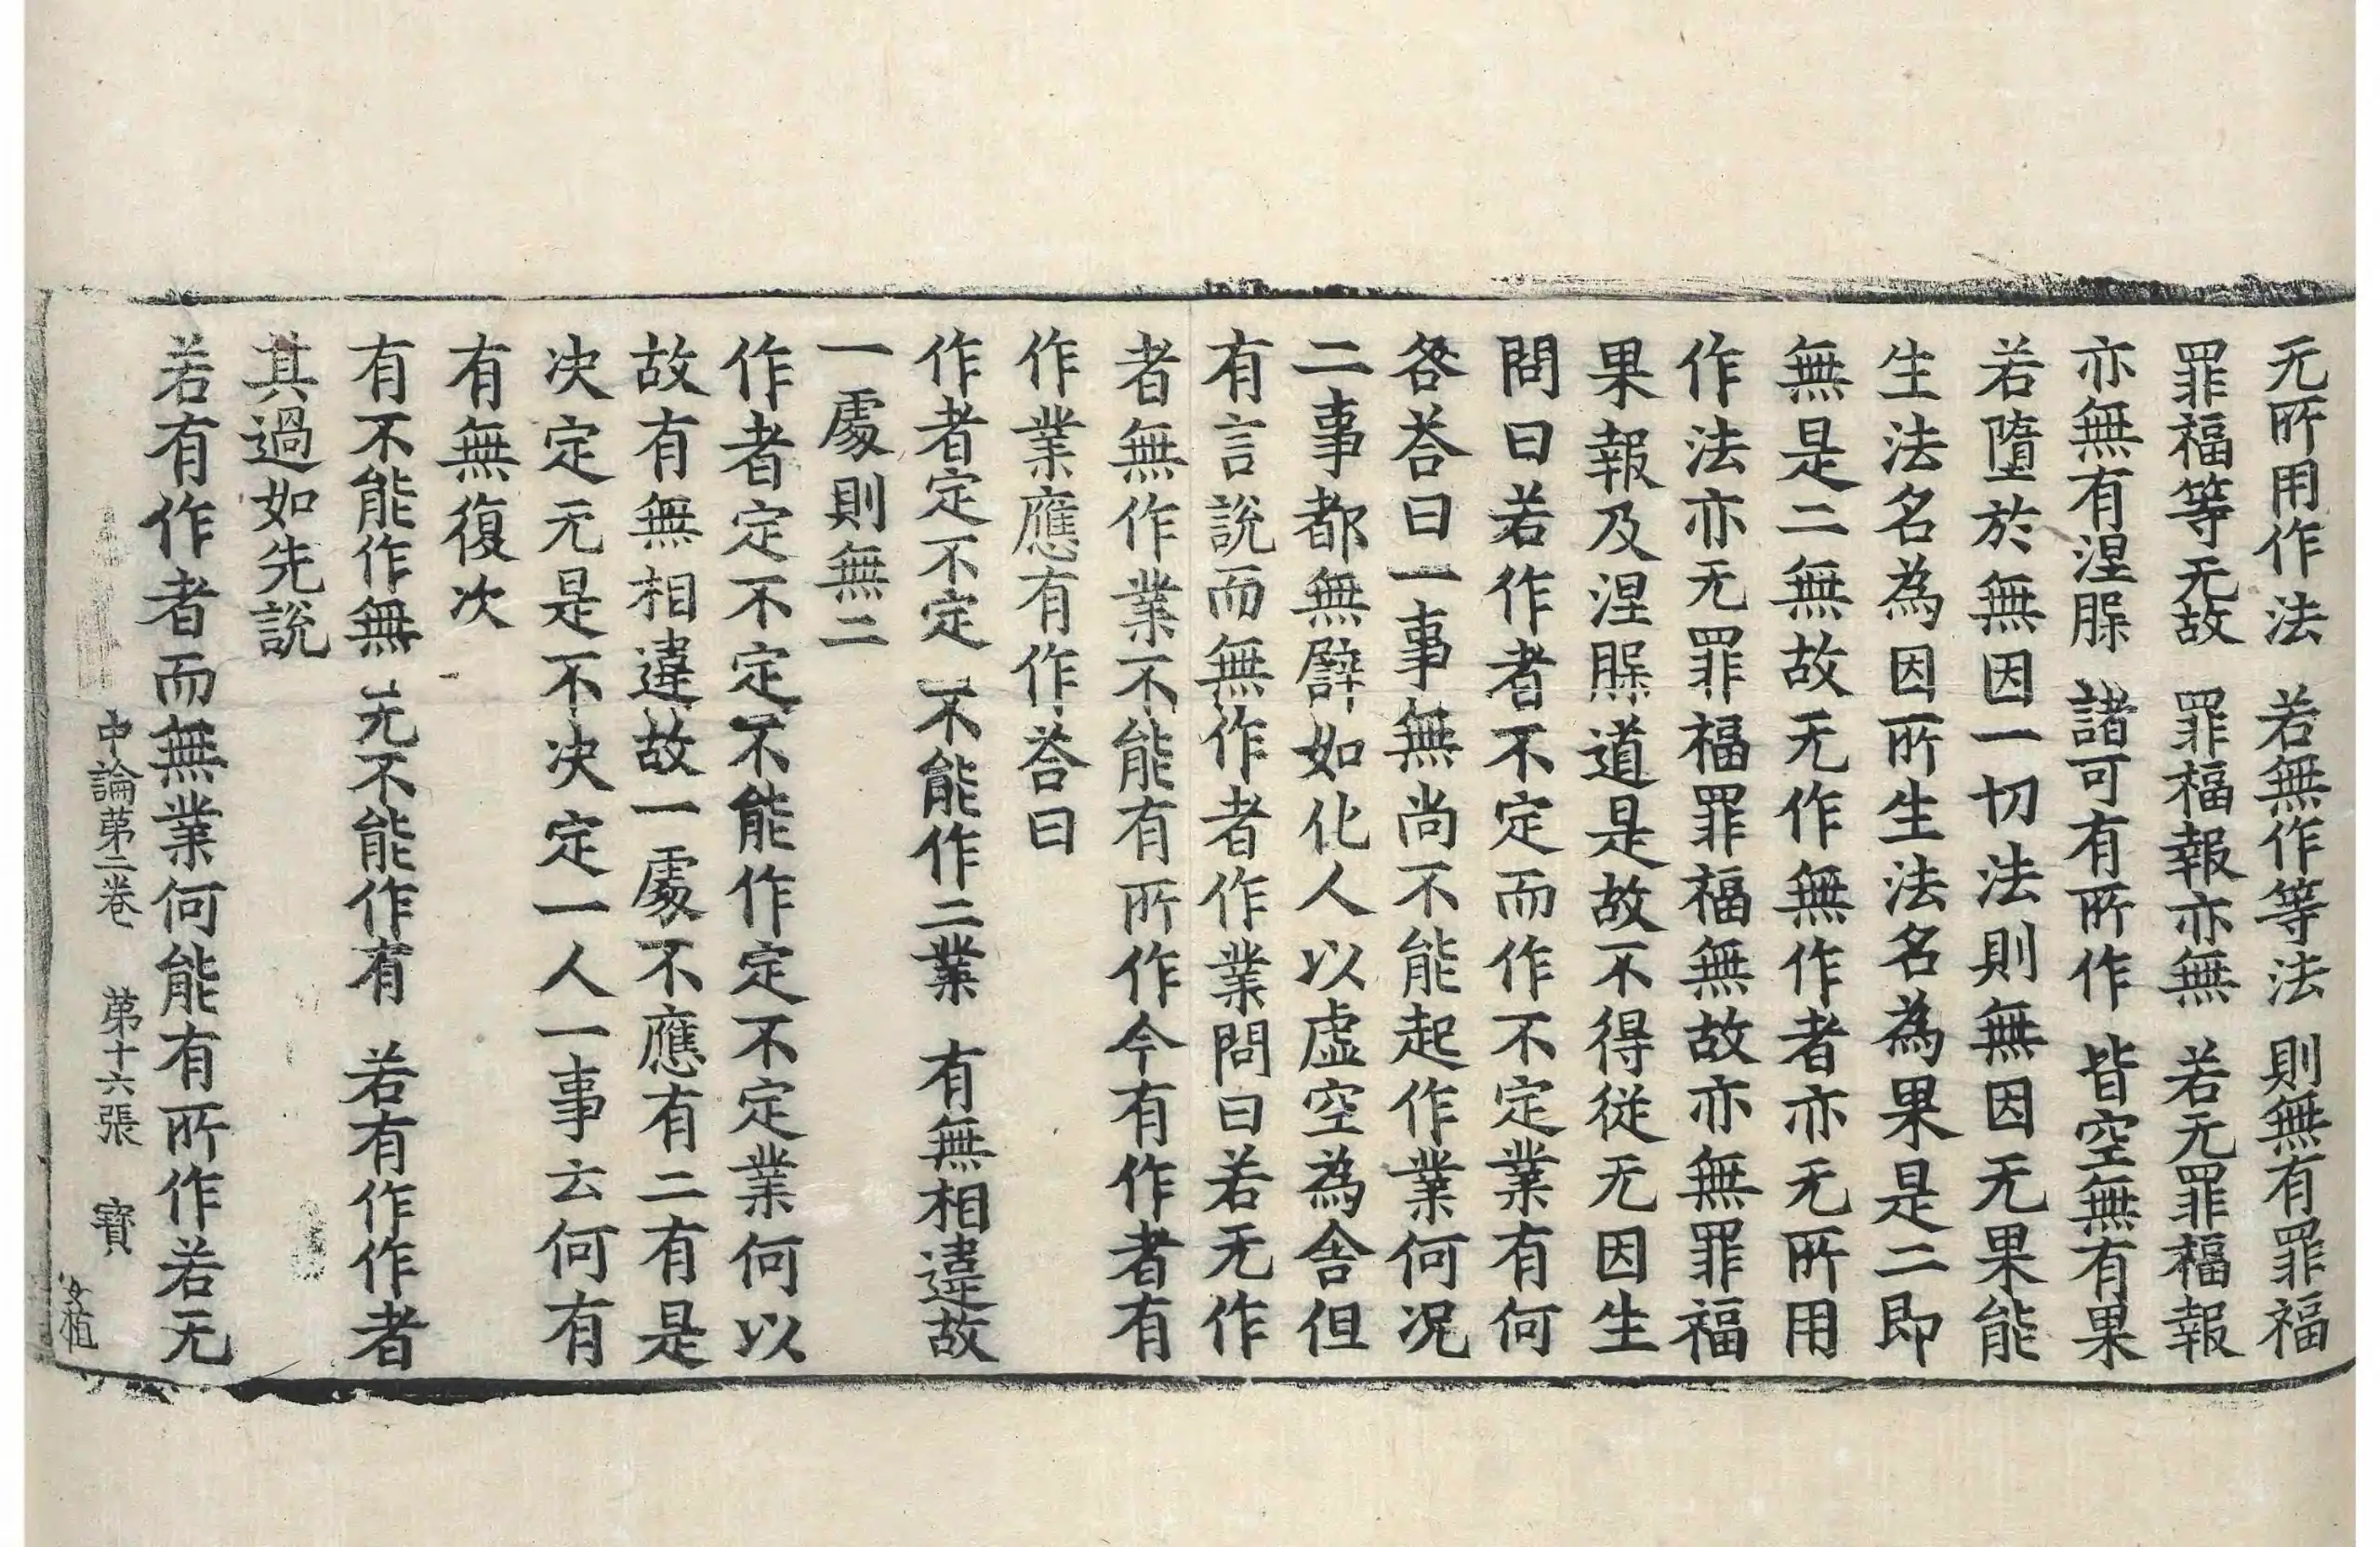 无所用作法　若無作等法　則無有罪福
罪福等无故　罪福報亦無　若无罪福報
亦無有涅䏶　諸可有所作　皆空無有果
若墮於無因一切法則無因无果能
生法名為因所生法名為果是二即
無是二無故无作無作者亦无所用
作法亦无罪福罪福無故亦無罪福
果報及涅䏶道是故不得從无因生
問曰若作者不定而作不定業有何
咎荅曰一事無尚不能起作業何况
二事都無譬如化人以虛空為舍但
有言說而無作者作業問曰若无作
者無作業不能有所作今有作者有
作業應有作荅曰
作者定不定　不能作二業　有無相違故
一處則無二
作者定不定不能作定不定業何以
故有無相違故一處不應有二有是
决定无是不决定一人一事云何有
有無復次
有不能作無　无不能作有　若有作作者
其過如先説
若有作者而無業何能有所作若无
中論苐二卷　苐十六張　寳